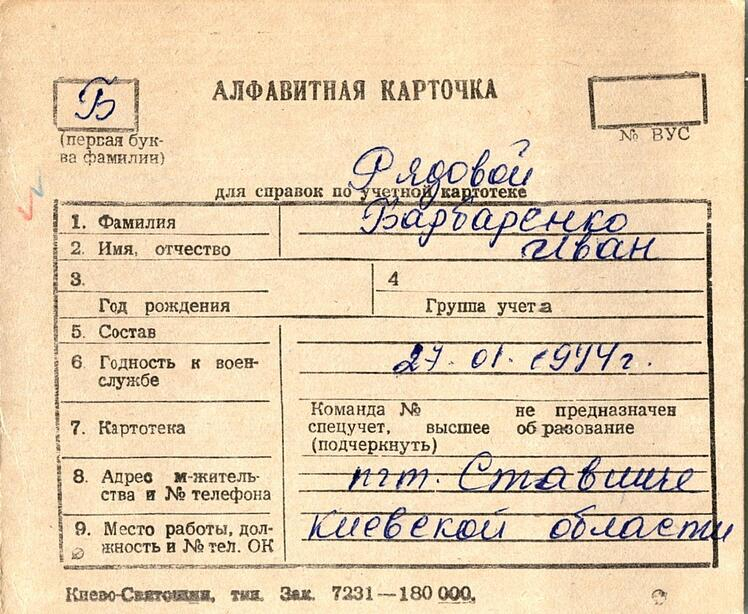 Б
АЛФАВИТНАЯ КАРТОЧКА
(первая бук-
ва фамилии)
№ ВУС
Рядовой
для справок по учетной картотеке
1. Фамилия Барбаренко
2. Имя, отчество Иван
3. 4
Год рождения Группа учета
5. Состав
6. Годность к воен-
службе
27. 01. 1944 г.
7. Картотека
Команда № не предназначен
спецучет, высшее образование
(подчеркнуть)
8. Адрес м-житель-
ства и № телефона
пгт. Ставище
9. Место работы, дол-
жность и № тел. ОК
Киевской области
Киево-Святошин, тип. Зак. 7231—180 000.